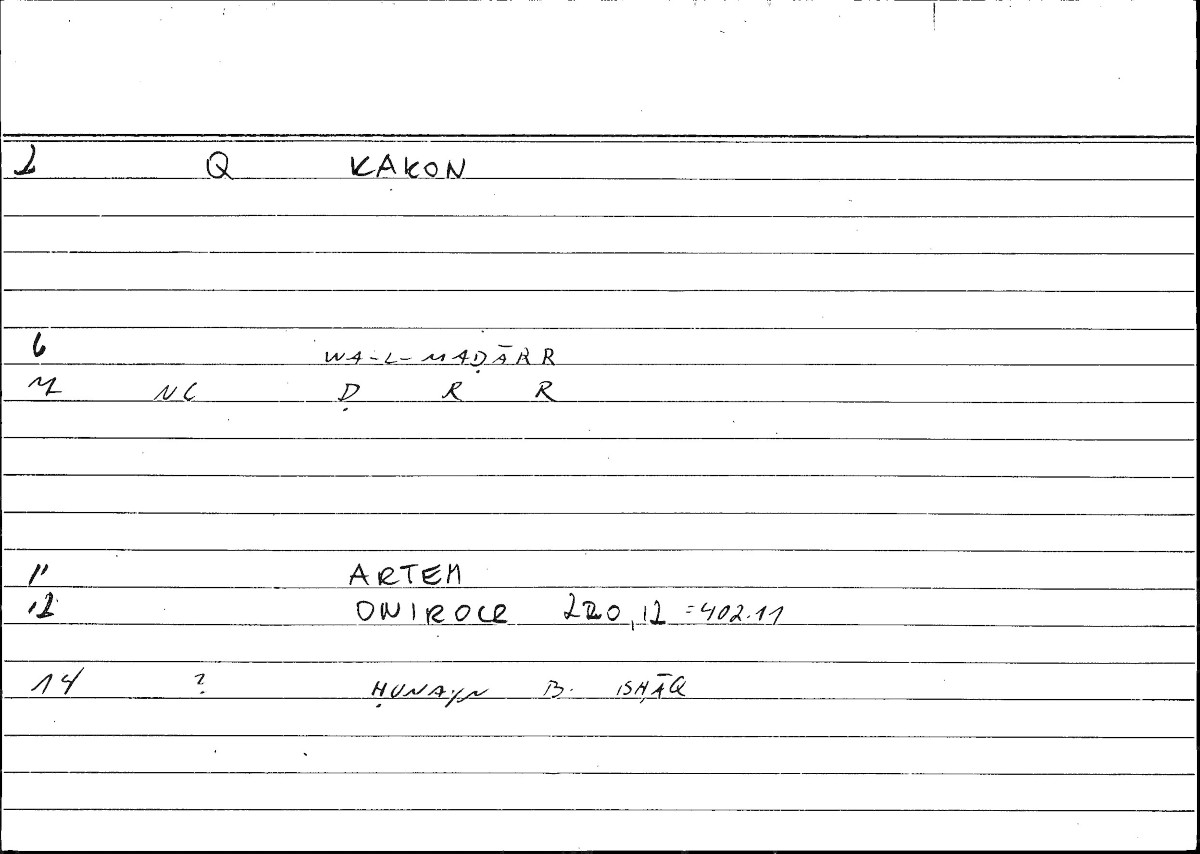 2 Q KAKON
6 WA-L-MAḌĀRR
7 NC Ḍ R R
11 ARTEM
12 ONIROCR 220,12 =402.11
14 ? ḤUNAYN B. ISḤĀQ